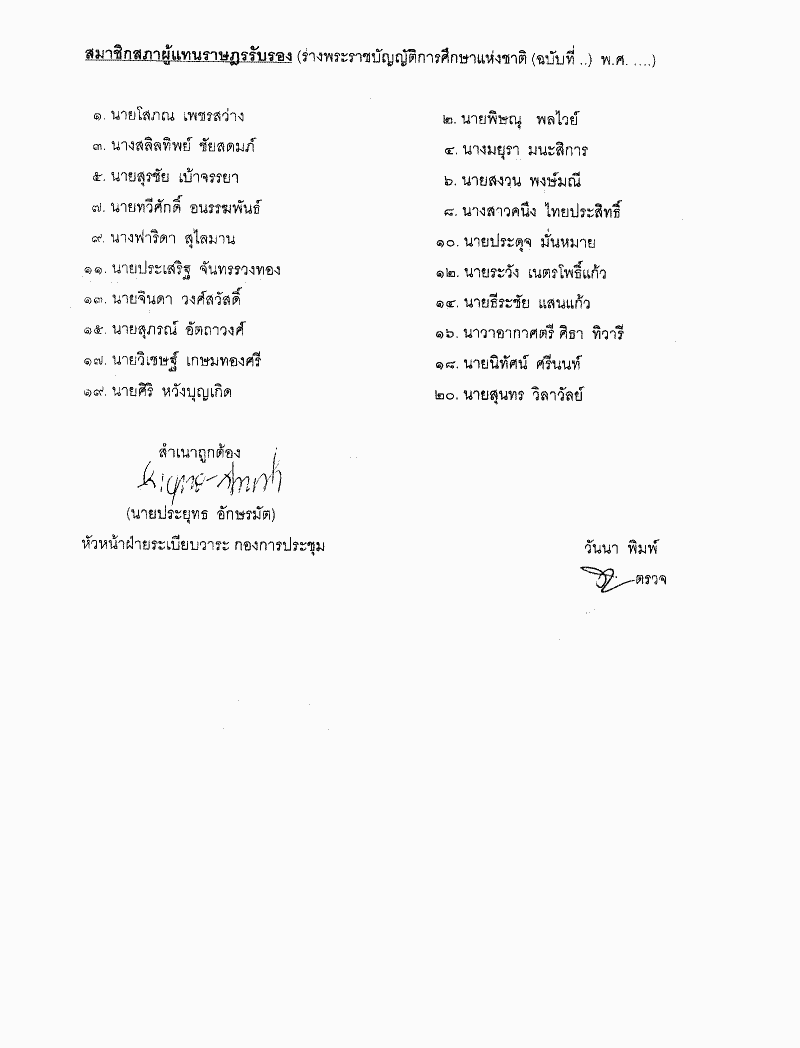 สมาชิกสภาผู้แทนราษฎรรับรอง (ร่างพระราชบัญญัติการศึกษาแห่งชาติ (ฉบับที่ ..) พ.ศ. ....)
๑. นายโสภณ เพชรสว่าง ๒. นายพิษณุ พลไวย์
๓. นางสลิลทิพย์ ชัยสดมภ์ ๔. นางมยุรา มนะสิการ
๕. นายสุรชัย เบ้าจรรยา ๖. นายสงวน พงษ์มณี
๗. นายทวีศักดิ์ อนรรฆพันธ์ ๘. นางสาวคนึง ไทยประสิทธิ์
๙. นางฟาริดา สุไลมาน ๑๐. นายประดุจ มั่นหมาย
๑๑. นายประเสริฐ จันทรรวงทอง ๑๒. นายระวัง เนตรโพธิ์แก้ว
๑๓. นายจินดา วงศ์สวัสดิ์ ๑๔. นายธีระชัย แสนแก้ว
๑๕. นายสุภรณ์ อัตถาวงศ์ ๑๖. นาวาอากาศตรี ศิธา ทิวารี
๑๗. นายวิเชษฐ์ เกษมทองศรี ๑๘. นายนิทัศน์ ศรีนนท์
๑๙. นายศิริ หวังบุญเกิด ๒๐. นายสุนทร วิลาวัลย์
สำเนาถูกต้อง
(นายประยุทธ อักษรมัต)
หัวหน้าฝ่ายระเบียบวาระ กองการประชุม
วันนา พิมพ์
ตรวจ